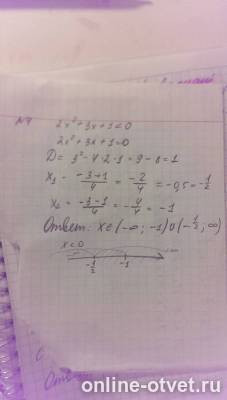 №4
2x²+3x+1<0
2x²+3x+1=0
D= 3²-4·2·1=9-8=1
x₁ = (-3+1)/4 = -2/4 = -0,5=-1/2
x₂ = (-3-1)/4 = -4/4 = -1
Ответ: x∈(-∞; -1)∪(-1/2; ∞)
x<0
-1/2 -1
online-otvet.ru